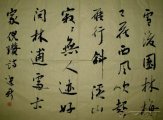 雪後園林梅
已花西風吹起
雁行斜溪山
寂寂無人迹好
問林逋處士
家 倪瓚詩